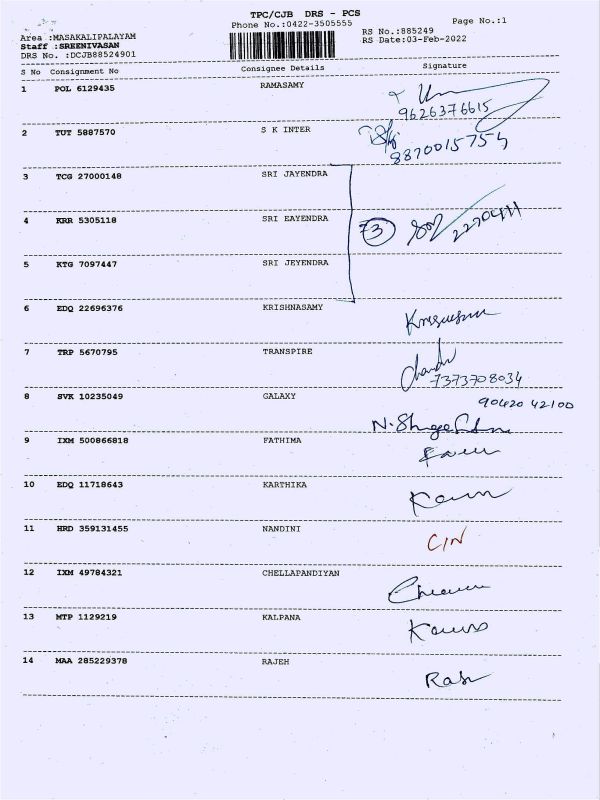 TPC/CJB DRS - PCS
Phone No.:0422-3505555
Page No.:1
Area :MASAKALIPALAYAM
Staff :SREENIVASAN
DRS No. :DCJB88524901
RS No.:885249
RS Date:03-Feb-2022
S No Consignment No Consignee Details Signature
1 POL 6129435 RAMASAMY
9626376615
2 TUT 5887570 S K INTER
8870015754
3 TCG 27000148 SRI JAYENDRA
4 KRR 5305118 SRI EAYENDRA
73
5 KTG 7097447 SRI JEYENDRA
6 EDQ 22696376 KRISHNASAMY
7 TRP 5670795 TRANSPIRE
7373708034
8 SVK 10235049 GALAXY
90420 42100
9 IXM 500866818 FATHIMA
10 EDQ 11718643 KARTHIKA
11 HRD 359131455 NANDINI
C/N
12 IXM 49784321 CHELLAPANDIYAN
13 MTP 1129219 KALPANA
14 MAA 285229378 RAJEH